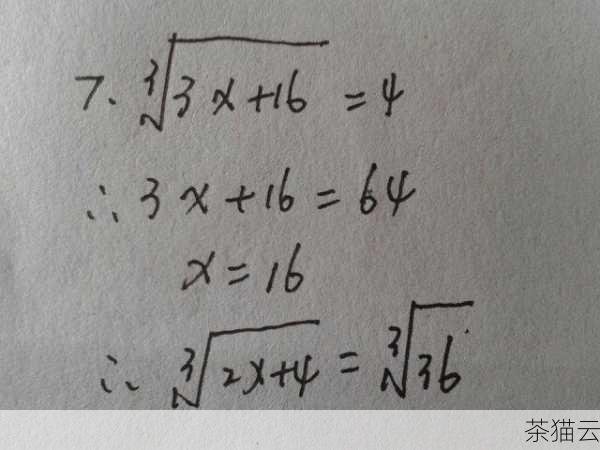 7. ∛(3x+16) = 4
∴ 3x+16 = 64
x = 16
∴ ∛(2x+4) = ∛36
茶猫云